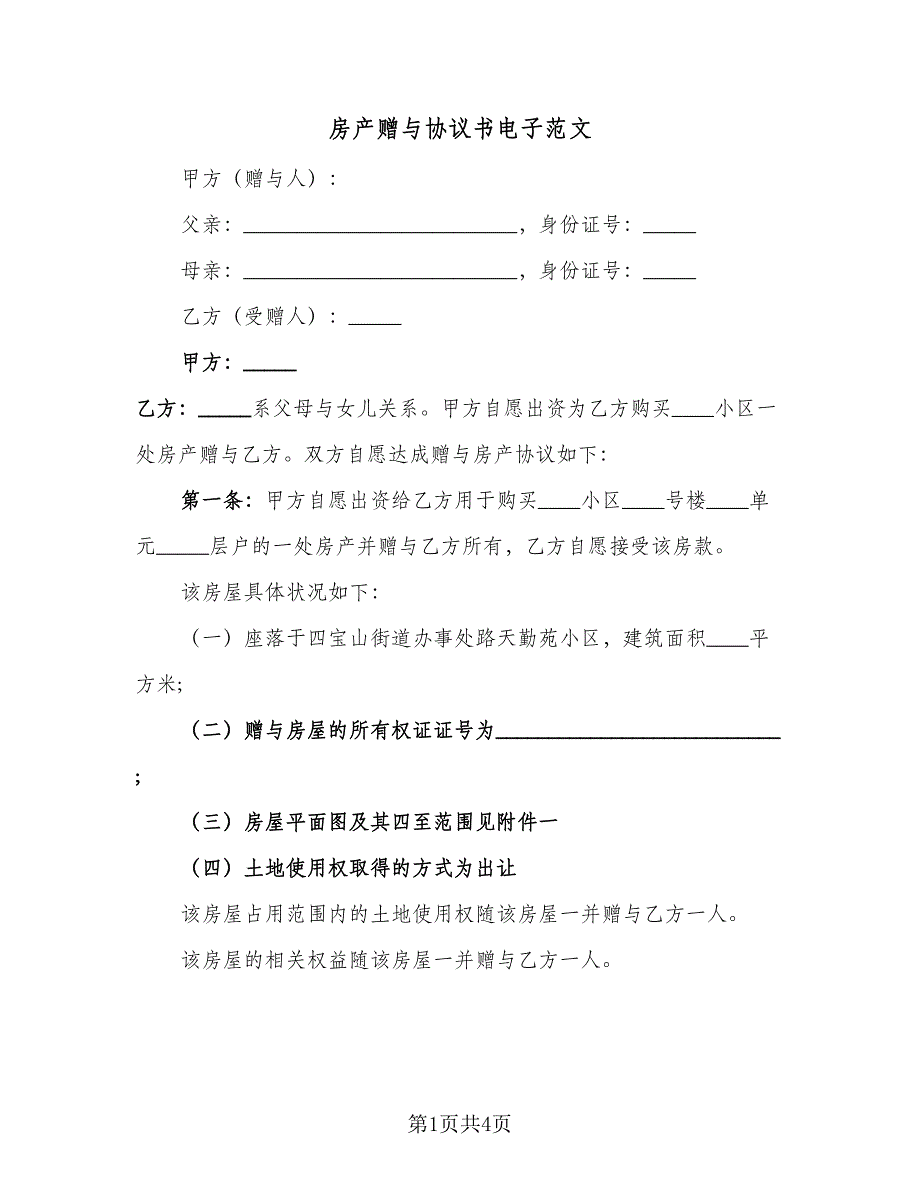 房产赠与协议书电子范文
甲方（赠与人）：
父亲：__________________________，身份证号：_____
母亲：__________________________，身份证号：_____
乙方（受赠人）：_____
甲方：_____
乙方：_____系父母与女儿关系。甲方自愿出资为乙方购买____小区一
处房产赠与乙方。双方自愿达成赠与房产协议如下：
第一条：甲方自愿出资给乙方用于购买____小区____号楼____单
元_____层户的一处房产并赠与乙方所有，乙方自愿接受该房款。
该房屋具体状况如下：
（一）座落于四宝山街道办事处路天勤苑小区，建筑面积____平
方米;
（二）赠与房屋的所有权证证号为___________________________
;
（三）房屋平面图及其四至范围见附件一
（四）土地使用权取得的方式为出让
该房屋占用范围内的土地使用权随该房屋一并赠与乙方一人。
该房屋的相关权益随该房屋一并赠与乙方一人。
第1页共4页